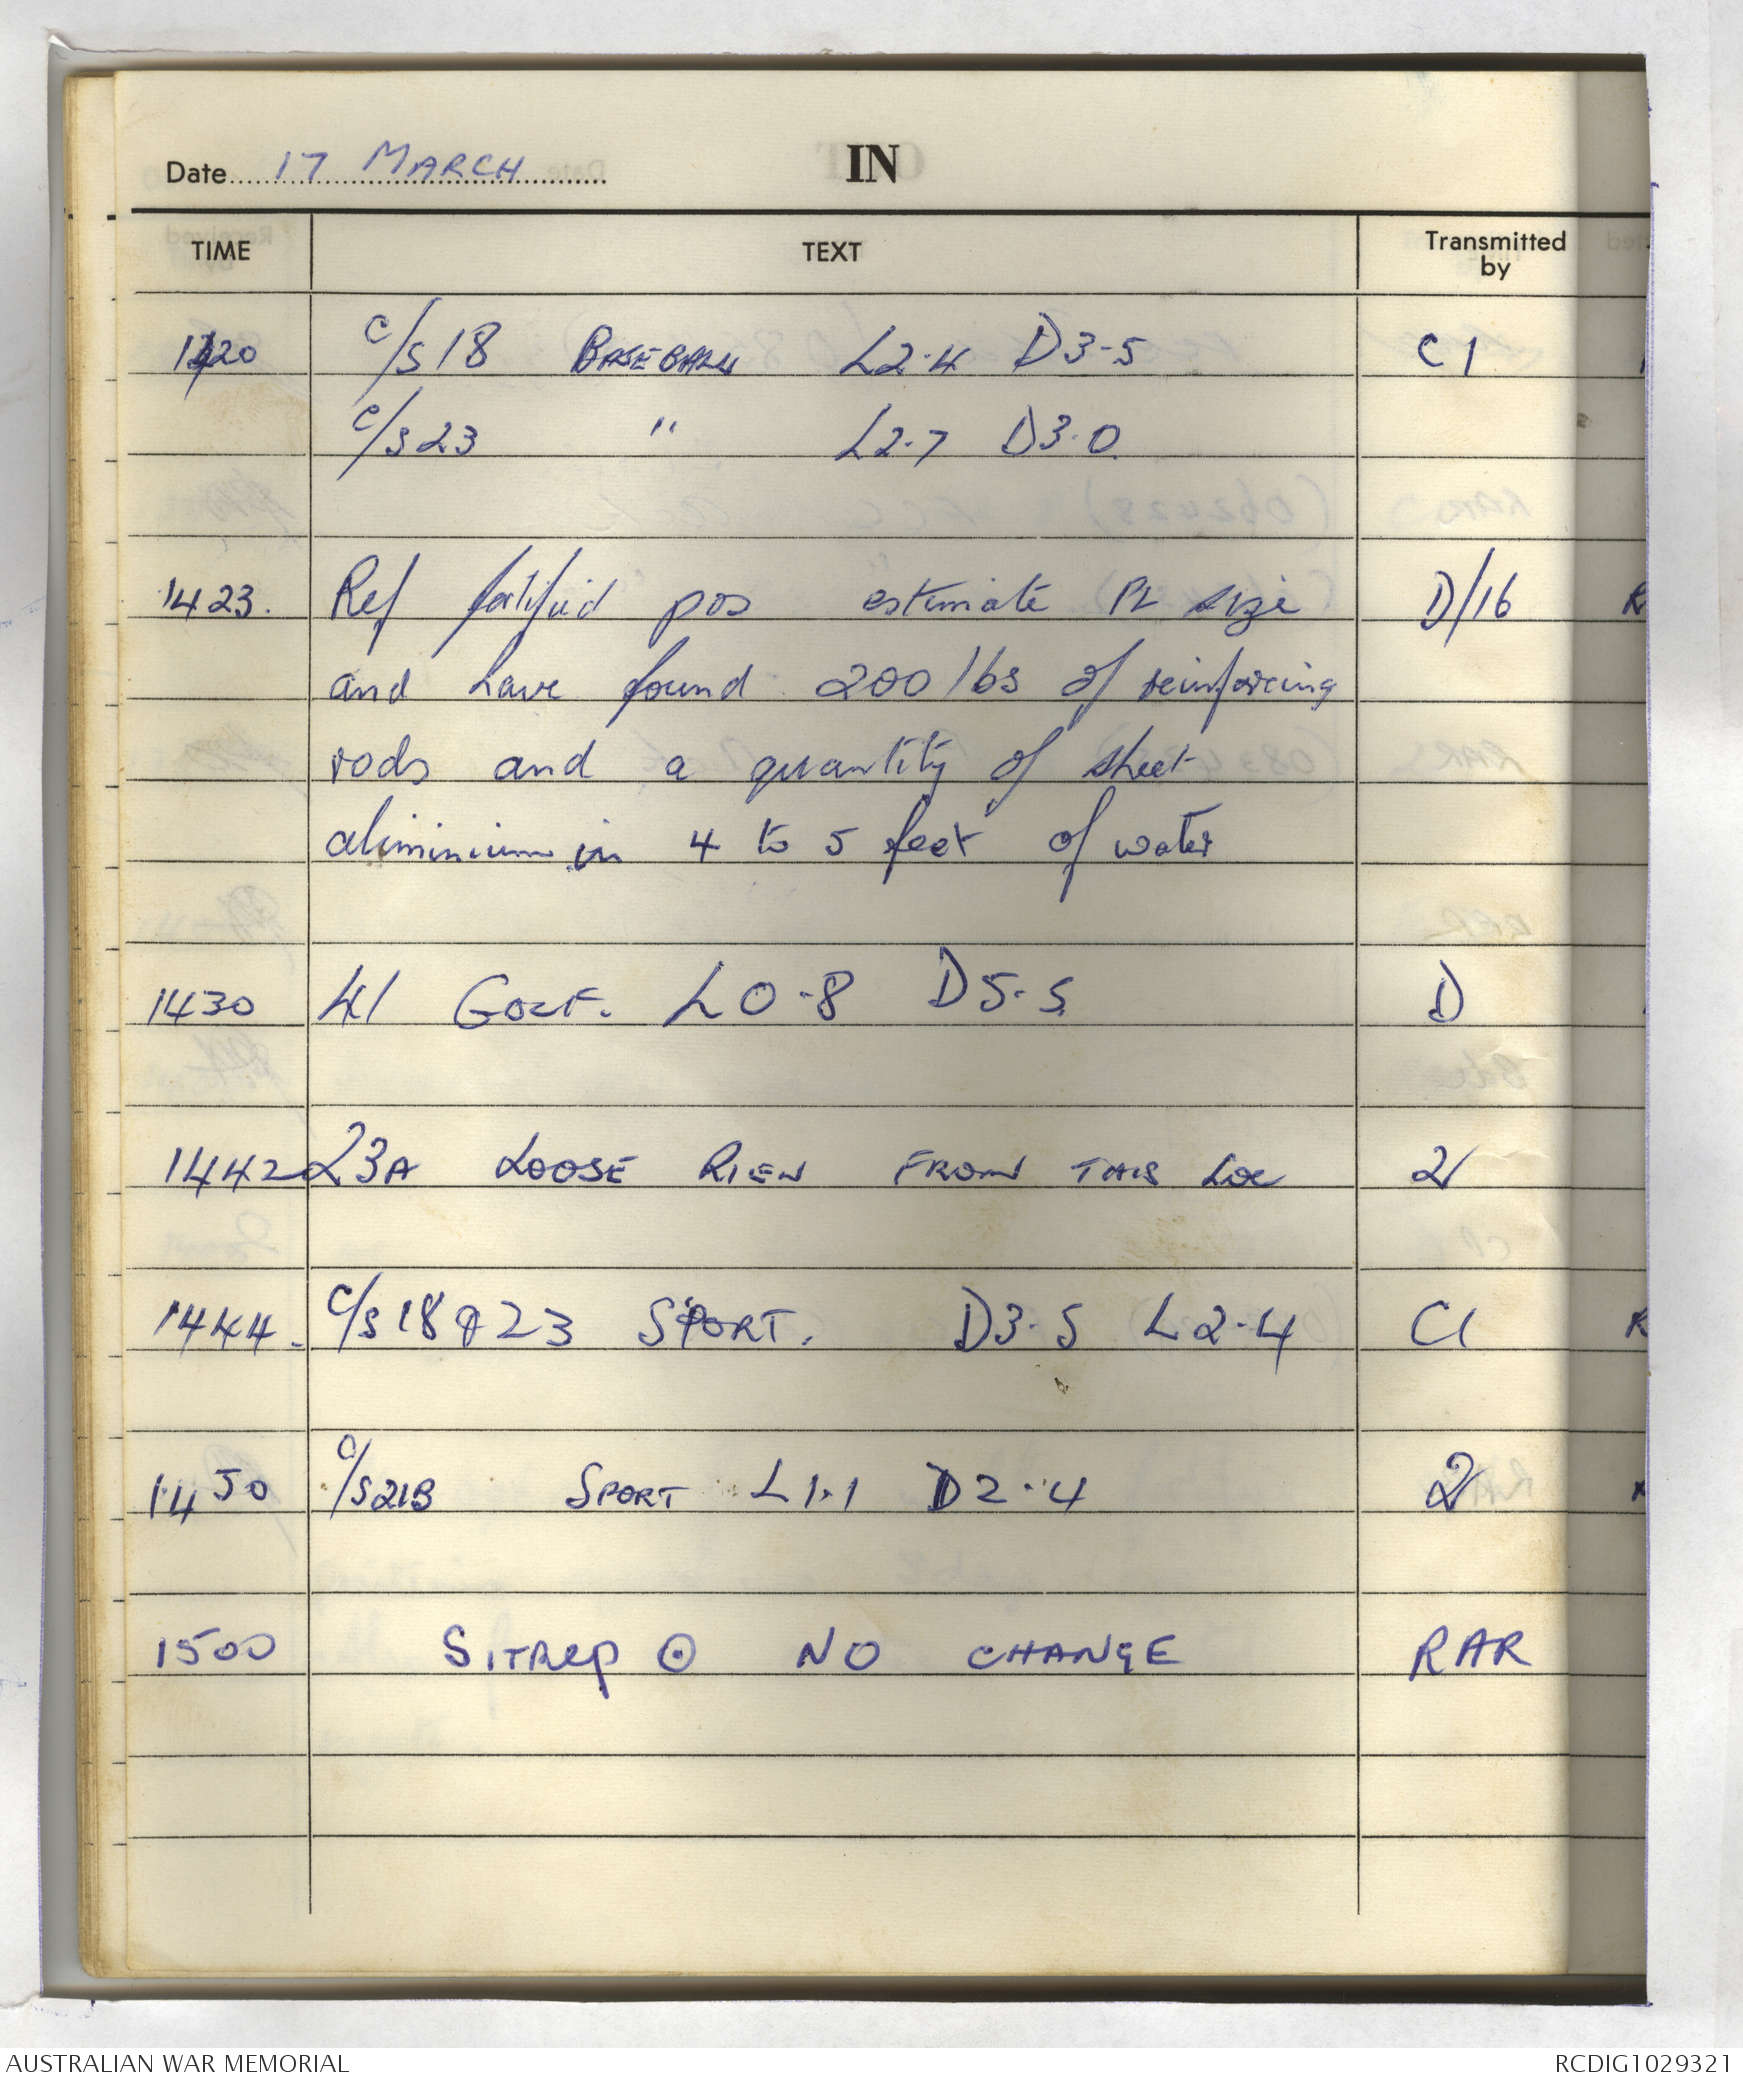 Date 17 MARCH
IN
TIME TEXT Transmitted by
1420 C/S 18 BASEBALL L2.4 D3-5 C1
C/S 23 " L2.7 D3.0
1423. Ref fortified pos estimate PL size D/16
and have found 200 lbs of reinforcing
rods and a quantity of sheet
aliminium in 4 to 5 feet of water
1430 41 GOLF. L0.8 D5.5 D
1442 23A LOOSE RIEN FROM THIS LOC 2
1444. C/S 18 & 23 SPORT. D3.5 L2.4 C1
1450 C/S 21B SPORT L1.1 D2.4 2
1500 SITREP NO CHANGE RAR
AUSTRALIAN WAR MEMORIAL RCDIG1029321